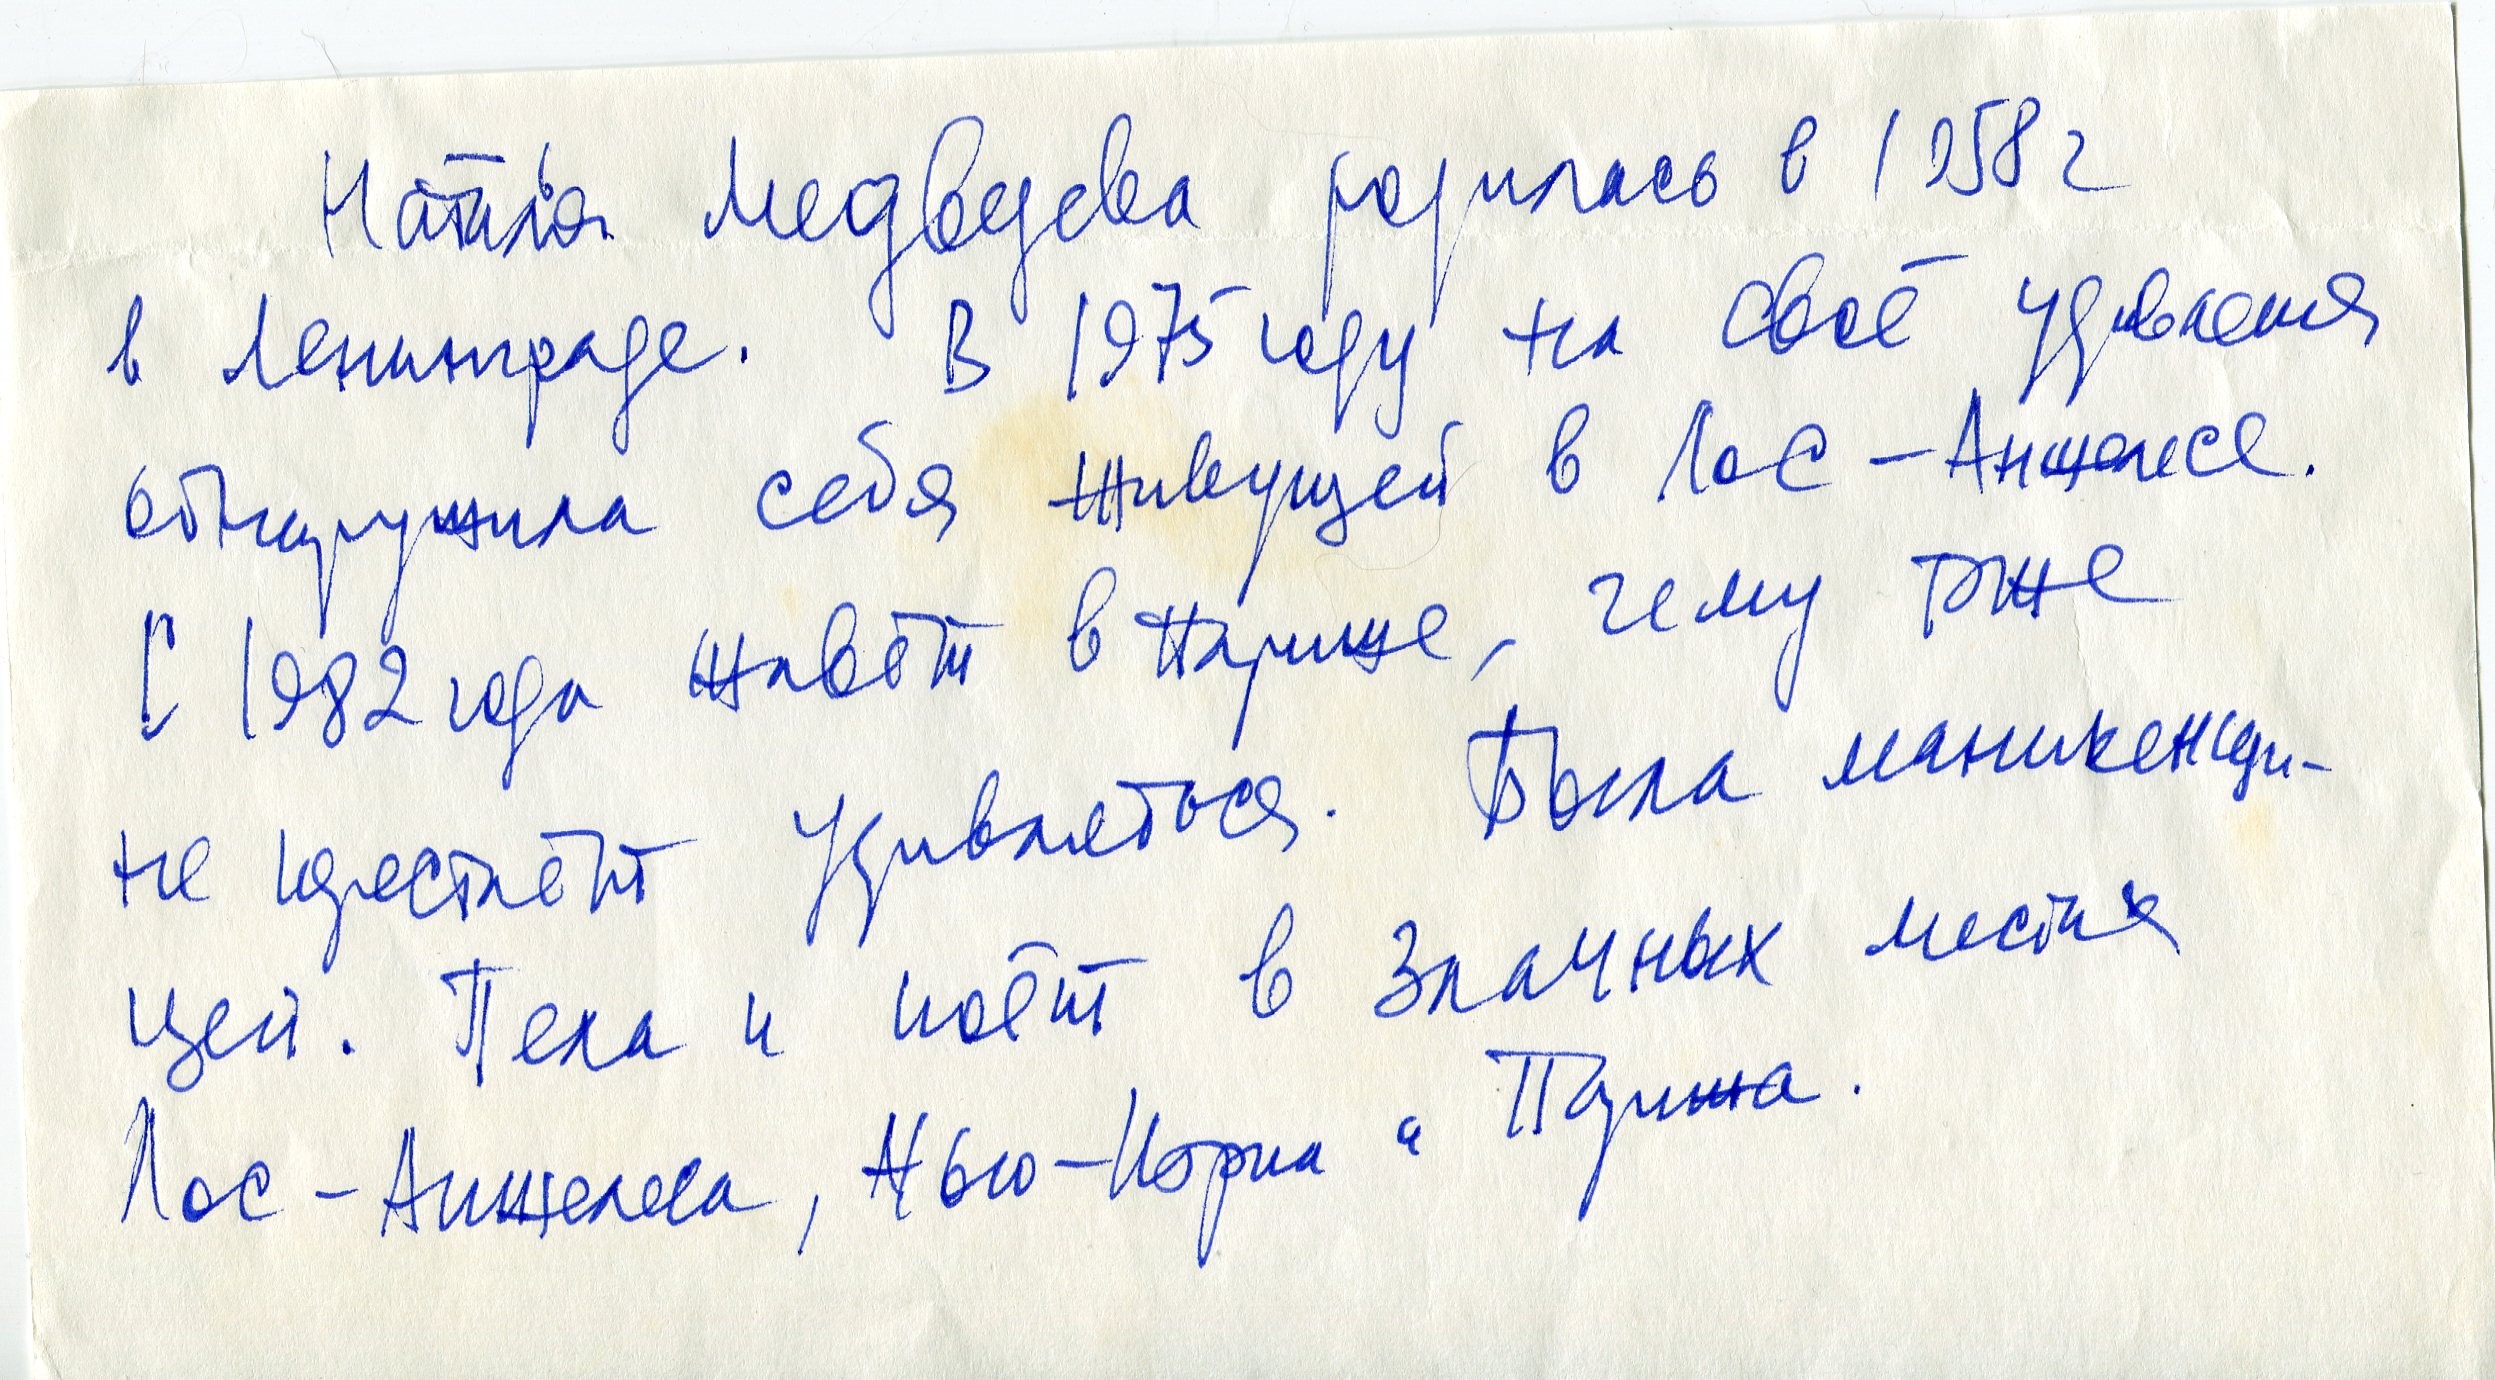 Наталья Медведева родилась в 1958 г
в Ленинграде. В 1975 году на своё удивления
обнаружила себя живущей в Лос-Анжелесе.
С 1982 года живёт в Париже, чему тоже
не перестаёт удивляться. Была манекенщи-
цей. Пела и поёт в злачных местах
Лос-Анжелеса, Нью-Йорка и Парижа.